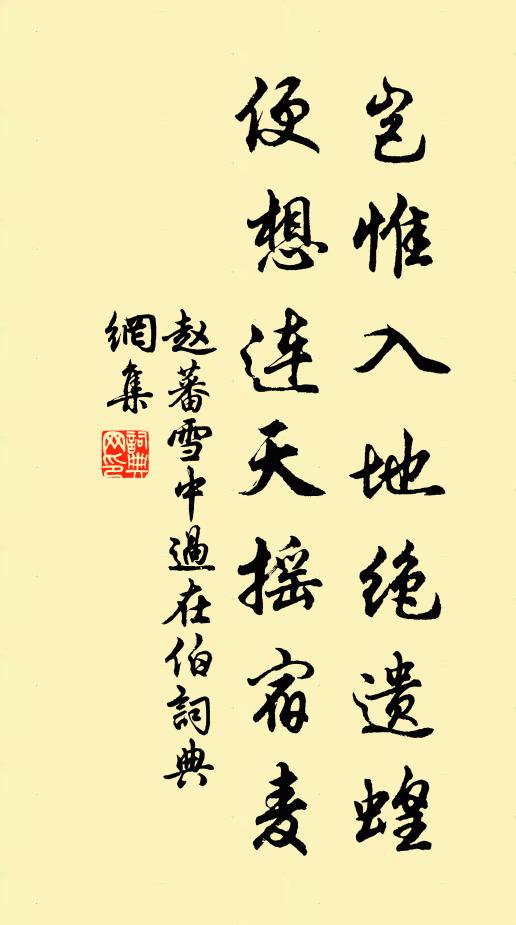 岂惟入地绝遗蝗
便想连天摇宿麦
赵蕃雪中過在伯詞典
網集
詞典网印